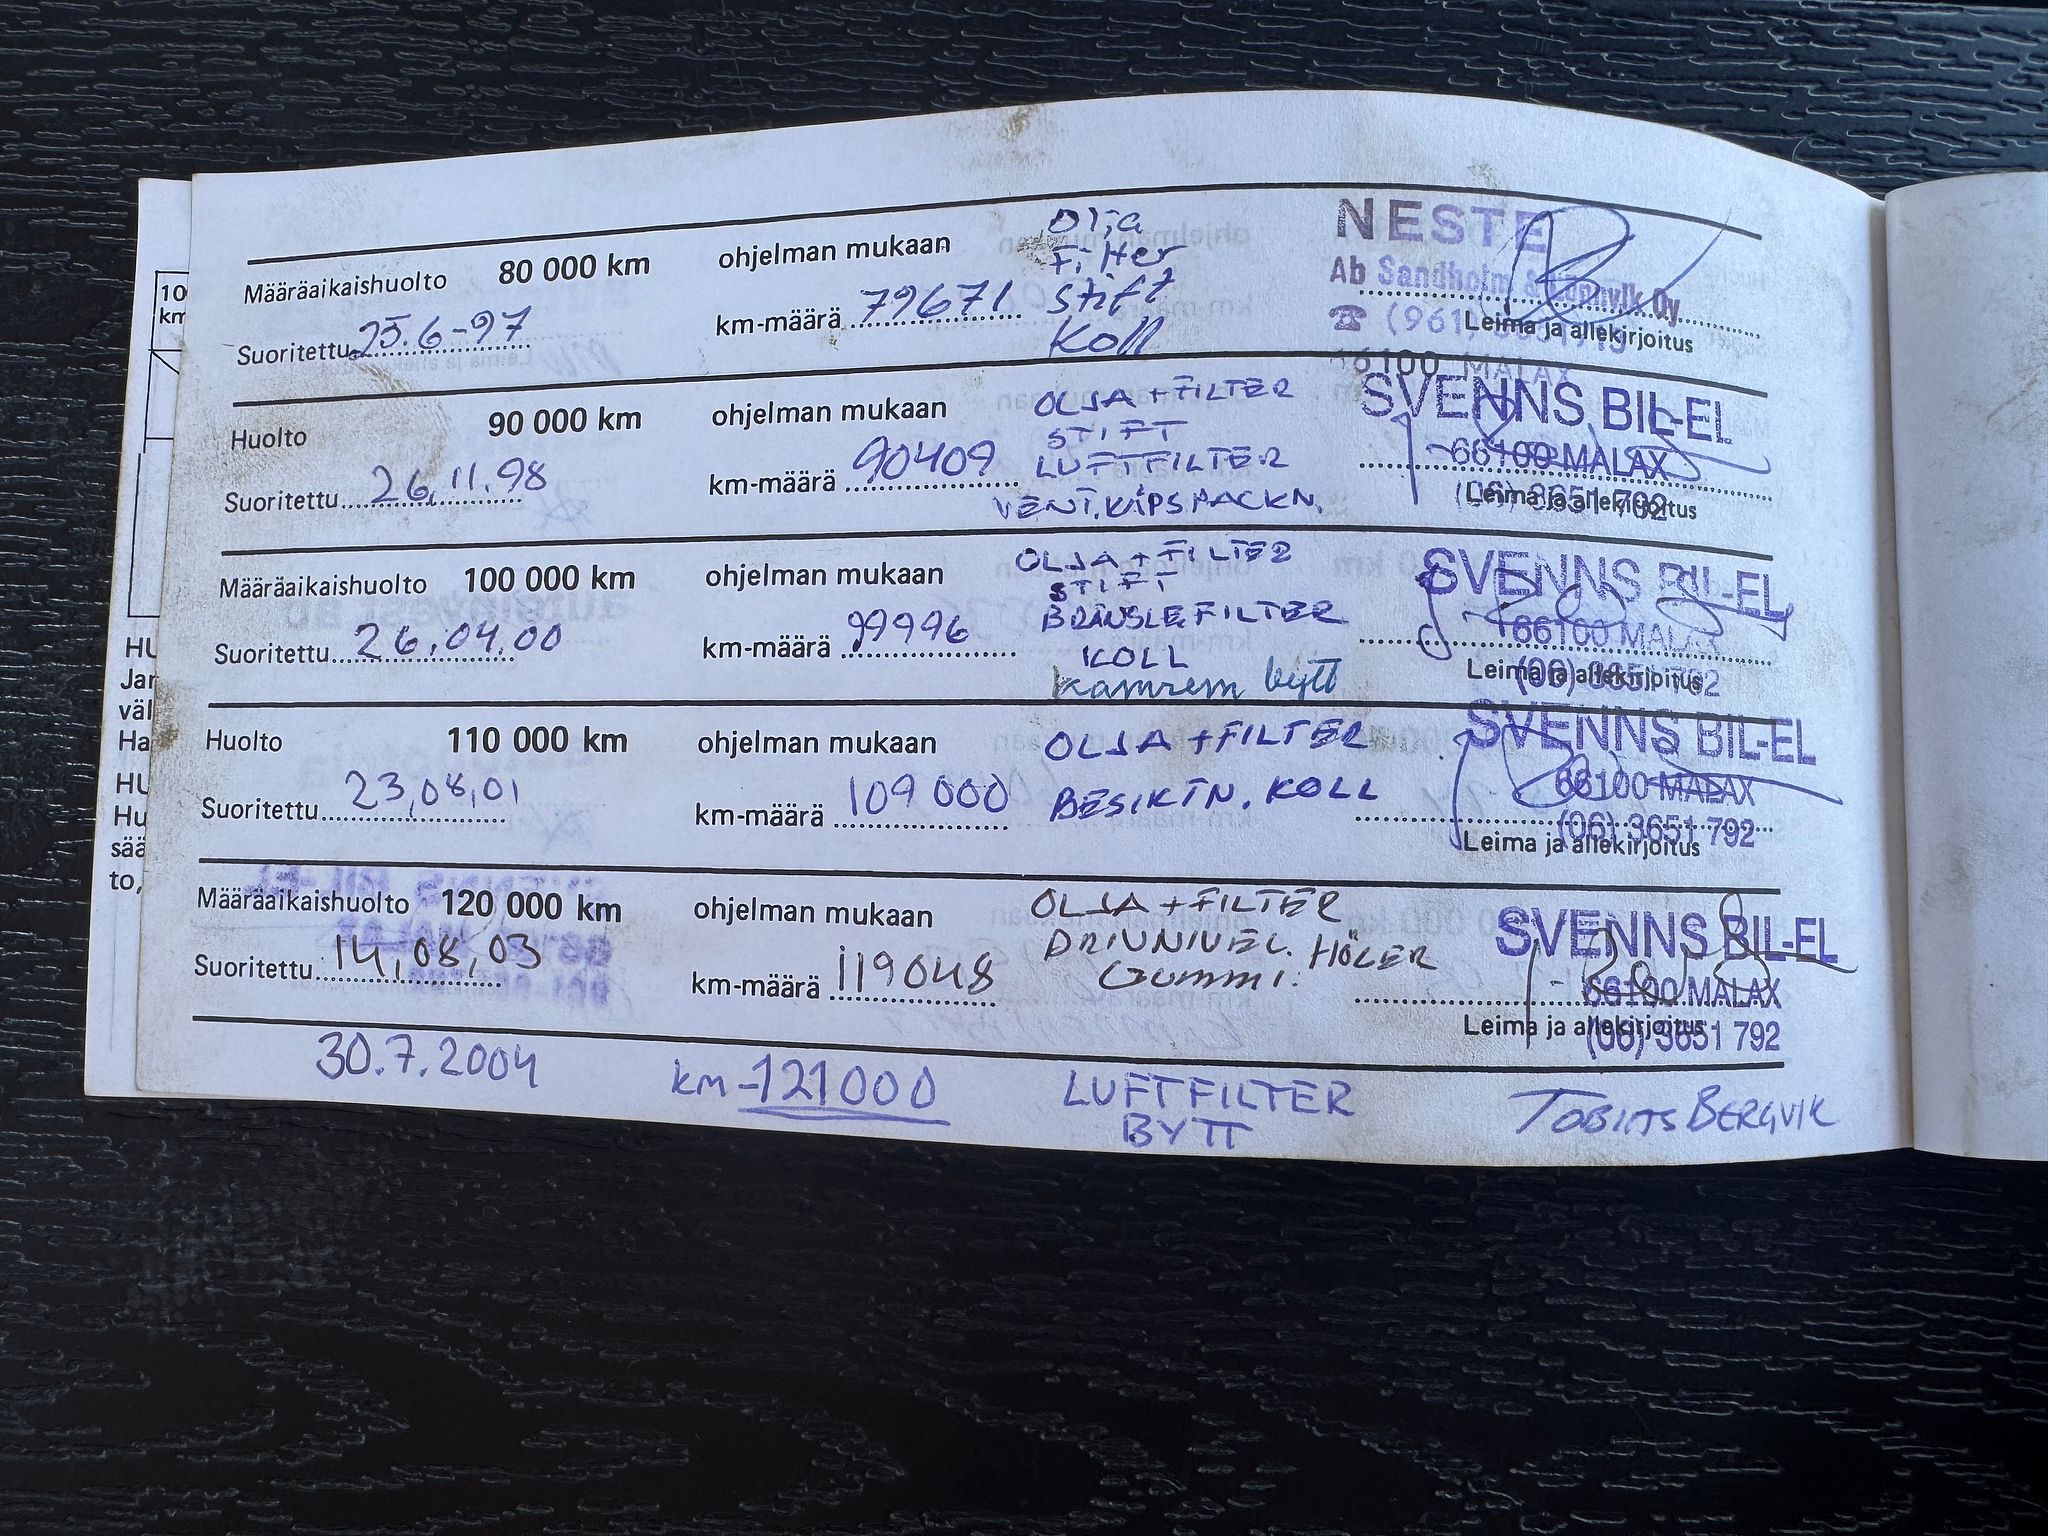 10
km
HU
Jar
väl
Ha
HU
Hu
sää
to,
Määräaikaishuolto 80 000 km ohjelman mukaan Olja
Filter
Suoritettu 25.6-97 km-määrä 79671 stift
Koll
NESTE
Ab Sandholm & Lönnvik Oy
Leima ja allekirjoitus
66100 MALAX
Huolto 90 000 km ohjelman mukaan OLJA + FILTER
STIFT
Suoritettu 26.11.98 km-määrä 90409 LUFTFILTER
VENT.KÅPSPACKN.
SVENNS BIL-EL
66100 MALAX
(06) 3651 792
Leima ja allekirjoitus
Määräaikaishuolto 100 000 km ohjelman mukaan OLJA + FILTER
STIFT
Suoritettu 26.04.00 km-määrä 99996 BRÄNSLEFILTER
KOLL
Kamrem bytt
SVENNS BIL-EL
66100 MALAX
(06) 3651 792
Leima ja allekirjoitus
Huolto 110 000 km ohjelman mukaan OLJA + FILTER
Suoritettu 23,08,01 km-määrä 109000 BESIKTN. KOLL
SVENNS BIL-EL
66100 MALAX
(06) 3651 792
Leima ja allekirjoitus
Määräaikaishuolto 120 000 km ohjelman mukaan OLJA + FILTER
Suoritettu 14,08,03 km-määrä 119048 DRIVNIVEL. HÖLJER
Gummi.
SVENNS BIL-EL
66100 MALAX
(06) 3651 792
Leima ja allekirjoitus
30.7.2004 km-121000 LUFTFILTER
BYTT
TOBIAS BERGVIK